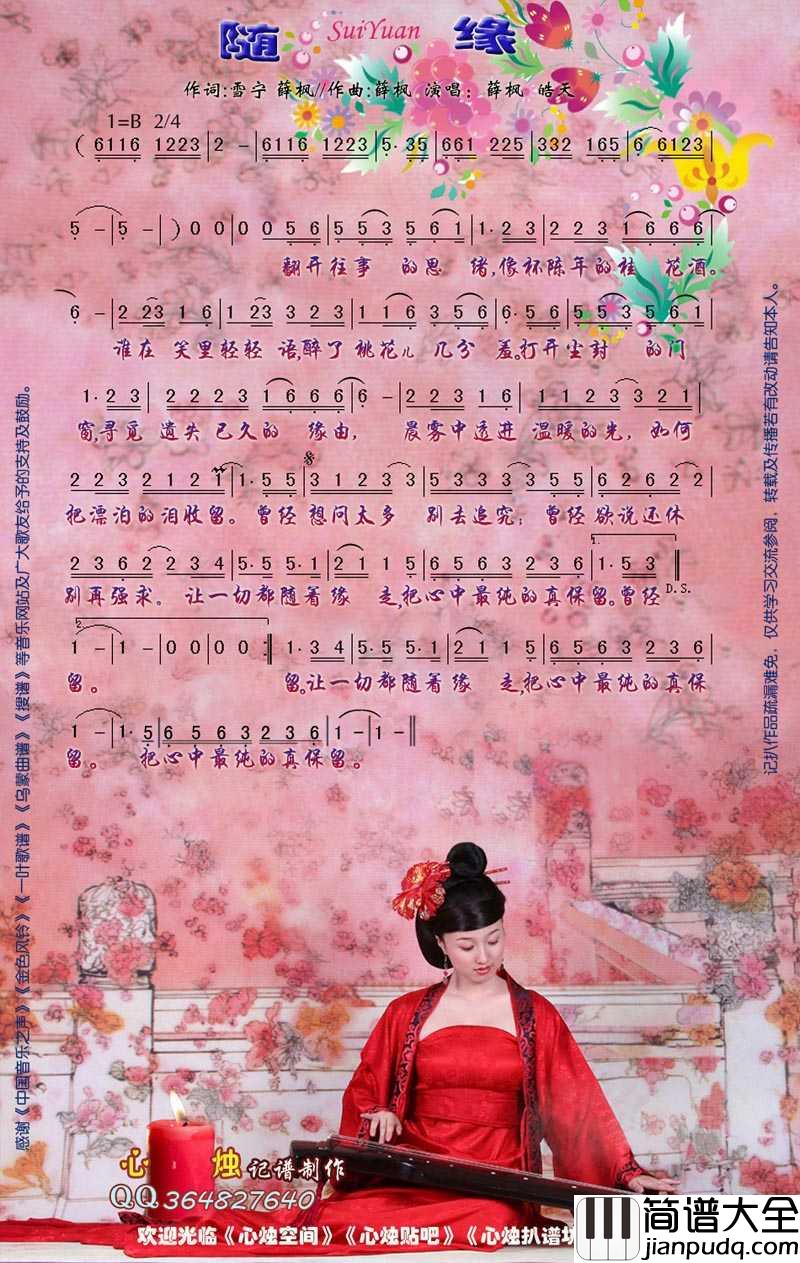 随 SuiYuan 缘
作词:雪宁 薛枫//作曲:薛枫 演唱：薛枫 皓天
1=B 2/4
( 6116 1223 | 2 - | 6116 1223 | 5· 35 | 661 225 | 332 165 | 6 6123 |
5 - | 5 - | ) 0 0 | 0 0 5 6 | 5 5 3 5 6 1 | 1· 2 3 | 2 2 2 3 1 6 6 6 |
翻开往事 的思 绪,像杯陈年的桂 花酒。
6 - | 2 23 1 6 | 1 23 3 2 | 1 1 6 3 5 | 6· 5 6 | 5 5 3 5 6 1 |
谁在 笑里轻轻 语,醉了 桃花儿 几分 羞。打开尘封 的门
1· 2 3 | 2 2 2 3 1 6 6 6 | 6 - | 2 2 3 1 6 | 1 1 2 3 3 2 1 |
窗,寻觅 遗失 已久的 缘由， 晨雾中透进 温暖的光，如何
2 3 2 1 2 1 | 1· 5 5 | 3 1 2 3 3 | 5 5 5 5 5 | 6 2 6 2 2 |
把漂泊的泪收留。曾经 想问太多 别去追究；曾经欲说还休
2 3 6 2 2 3 4 | 5· 5 5· 1 | 2 1 1 5 | 6 5 6 3 2 3 6 | 1· 5 3 ‖
1.
别再强求。让一切都随着缘 走,把心中最纯的真保留。曾经 D.S.
2.
1 - | 1 - | 0 0 | 0 0 :‖ 1· 3 4 | 5· 5 5· 1 | 2 1 1 5 | 6 5 6 3 2 3 6 |
留。 留。让一切都随着缘 走,把心中最纯的真保
1 - | 1· 5 | 6 5 6 3 2 3 6 | 1 - | 1 - ‖
留。 把心中最纯的真保留。
感谢《中国音乐之声》《金色风铃》《一叶歌谱》《乌蒙曲谱》《搜谱》等音乐网站及广大歌友给予的支持及鼓励。
记扒作品疏漏难免，仅供学习交流参阅，转载及传播若有改动请告知本人。
心 烛 记谱制作
QQ364827640
欢迎光临《心烛空间》《心烛贴吧》《心烛扒谱坊
简谱大全
jianpudq.com